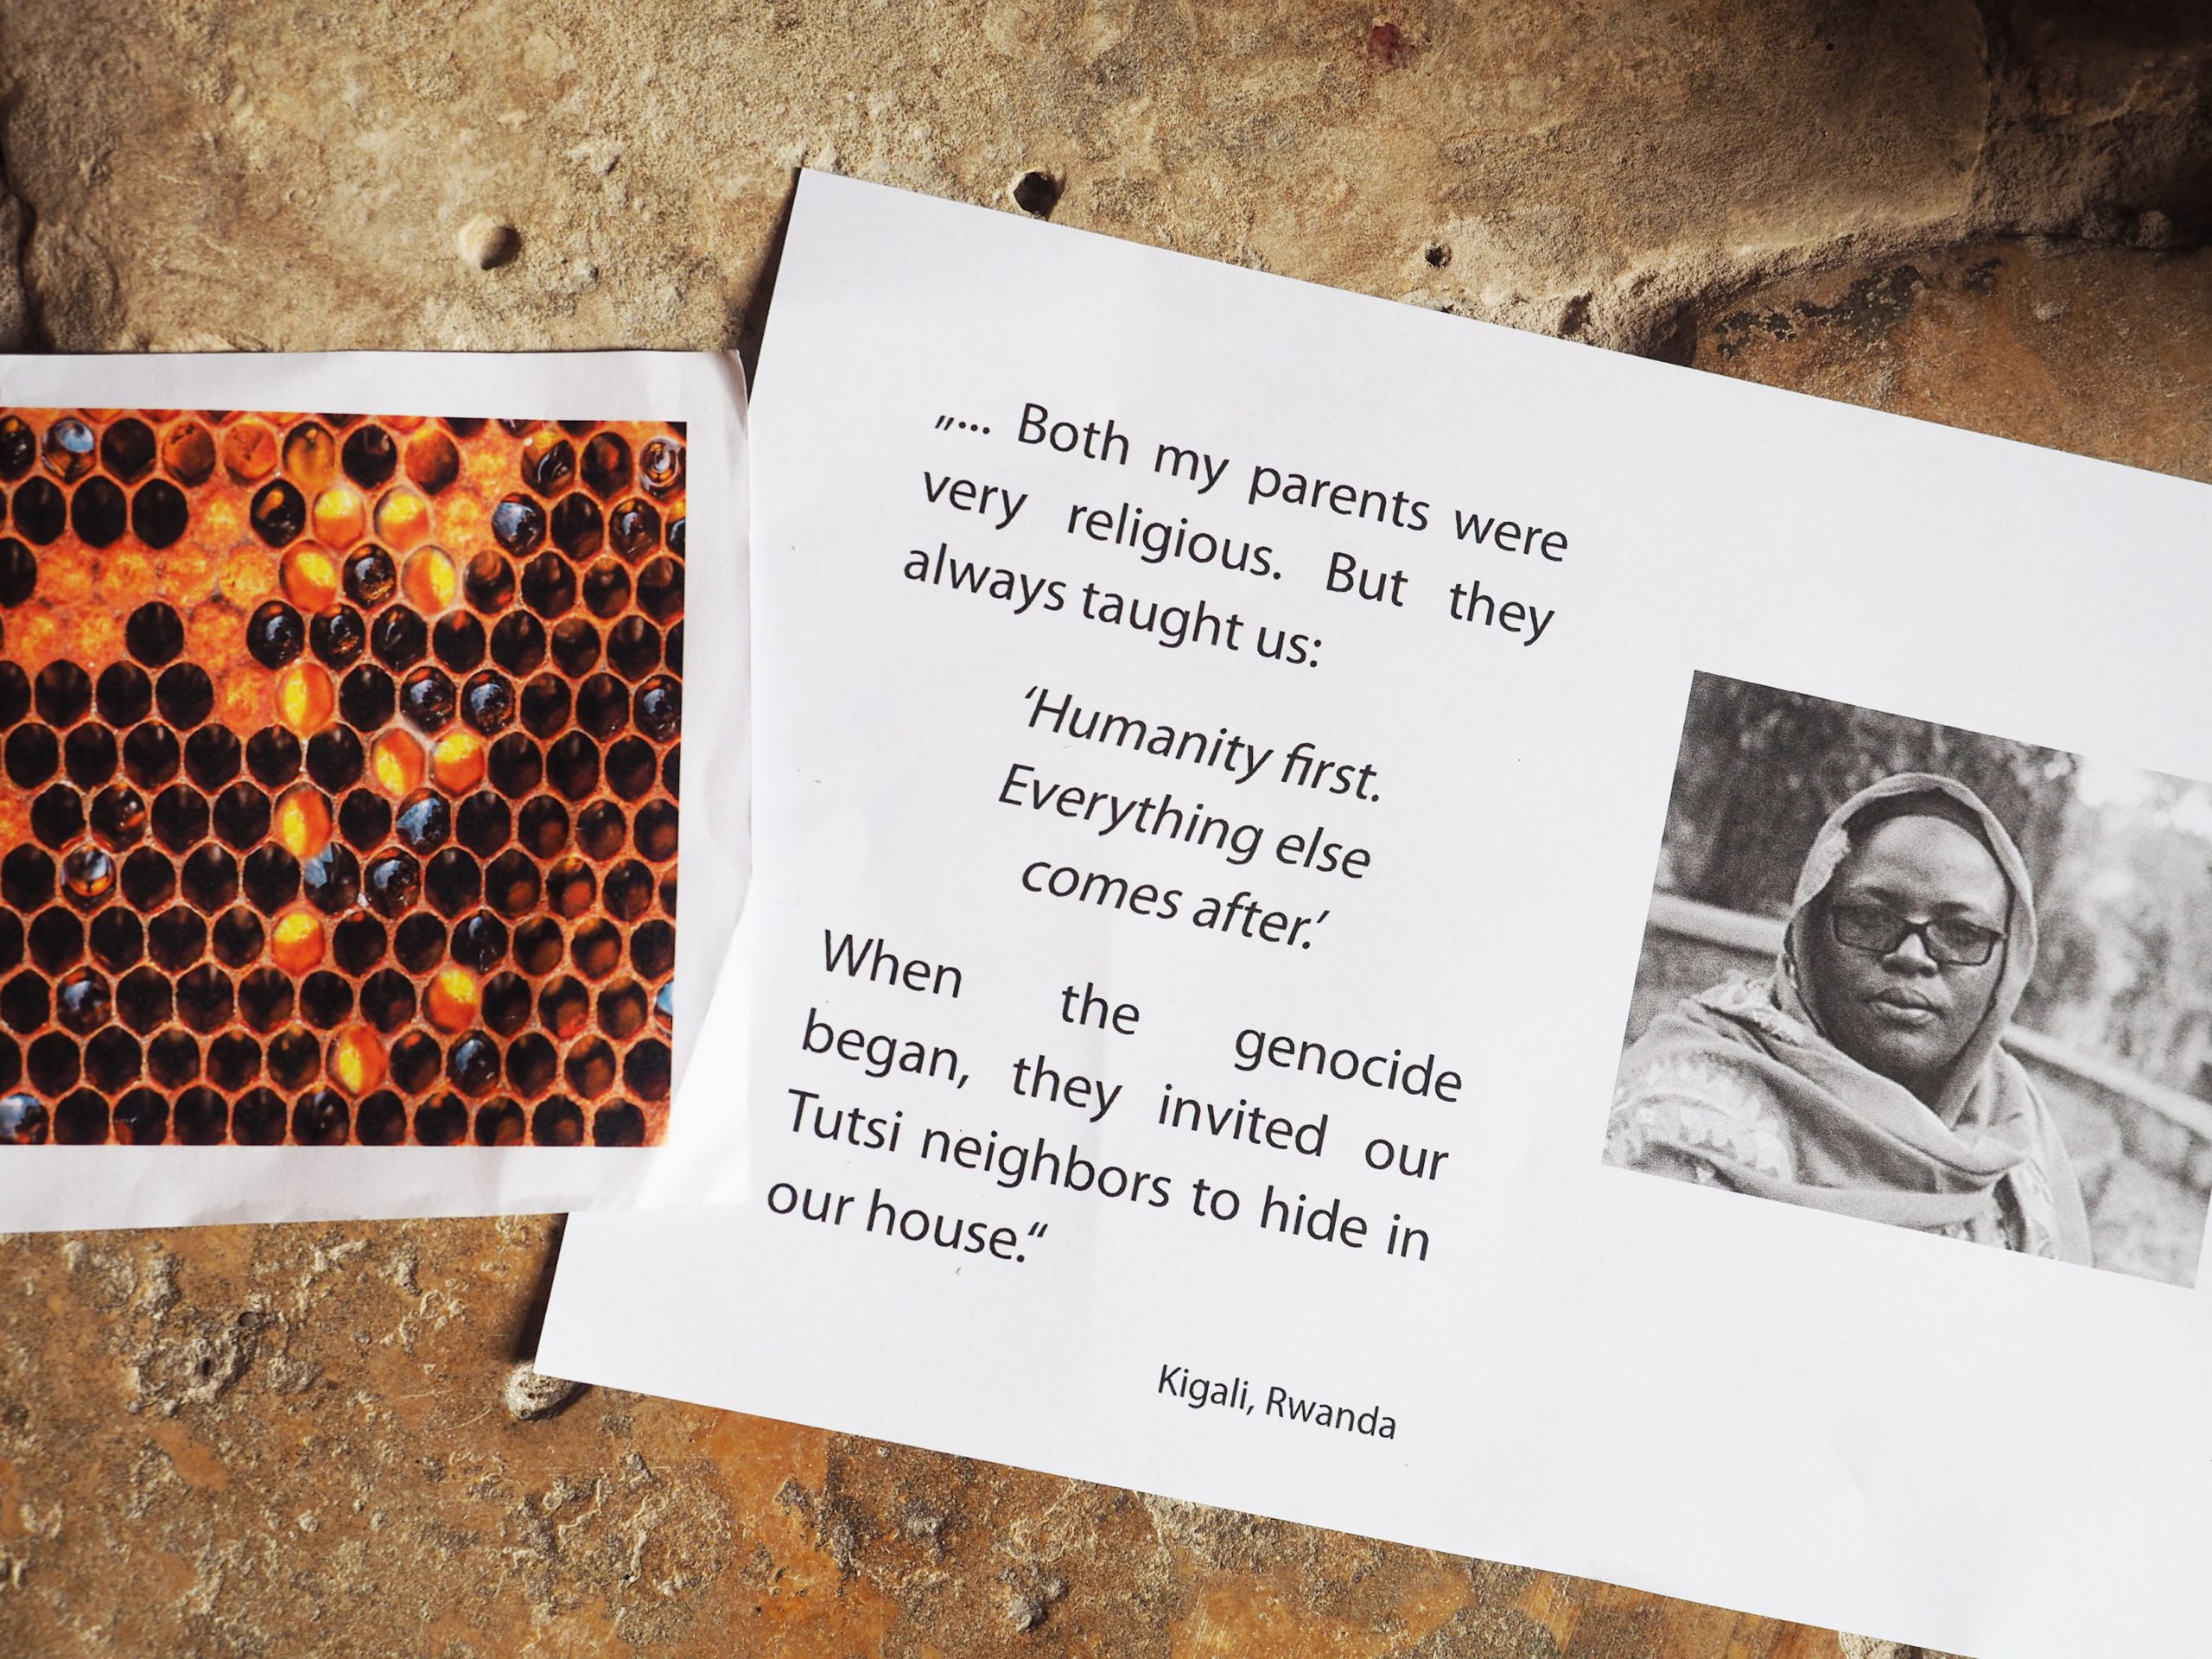 „... Both my parents were
very religious. But they
always taught us:
‘Humanity first.
Everything else
comes after.’
When the genocide
began, they invited our
Tutsi neighbors to hide in
our house.“
Kigali, Rwanda